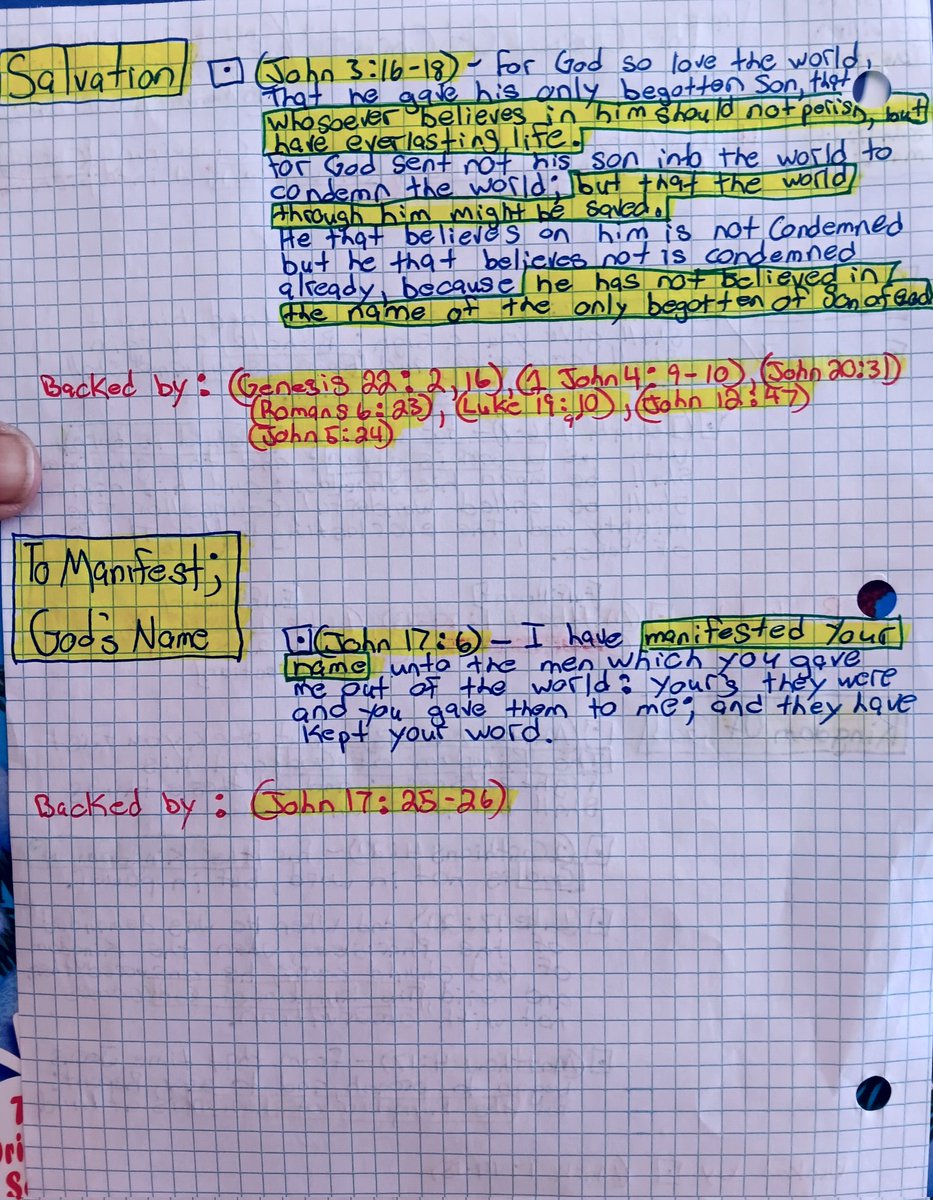 Salvation
(John 3:16-18) - For God so love the world,
that he gave his only begotten Son, that
whosoever believes in him should not perish, but
have everlasting life.
for God sent not his son into the world to
condemn the world; but that the world
through him might be saved.
He that believes on him is not Condemned
but he that believes not is condemned
already, because he has not believed in
the name of the only begotten of Son of God
Backed by: (Genesis 22:2,16), (1 John 4:9-10), (John 20:31)
(Romans 6:23), (Luke 19:10), (John 12:47)
(John 5:24)
To Manifest;
God's Name
(John 17:6) - I have manifested Your
name unto the men which you gave
me out of the world: your's they were
and you gave them to me; and they have
kept your word.
Backed by: (John 17:25-26)